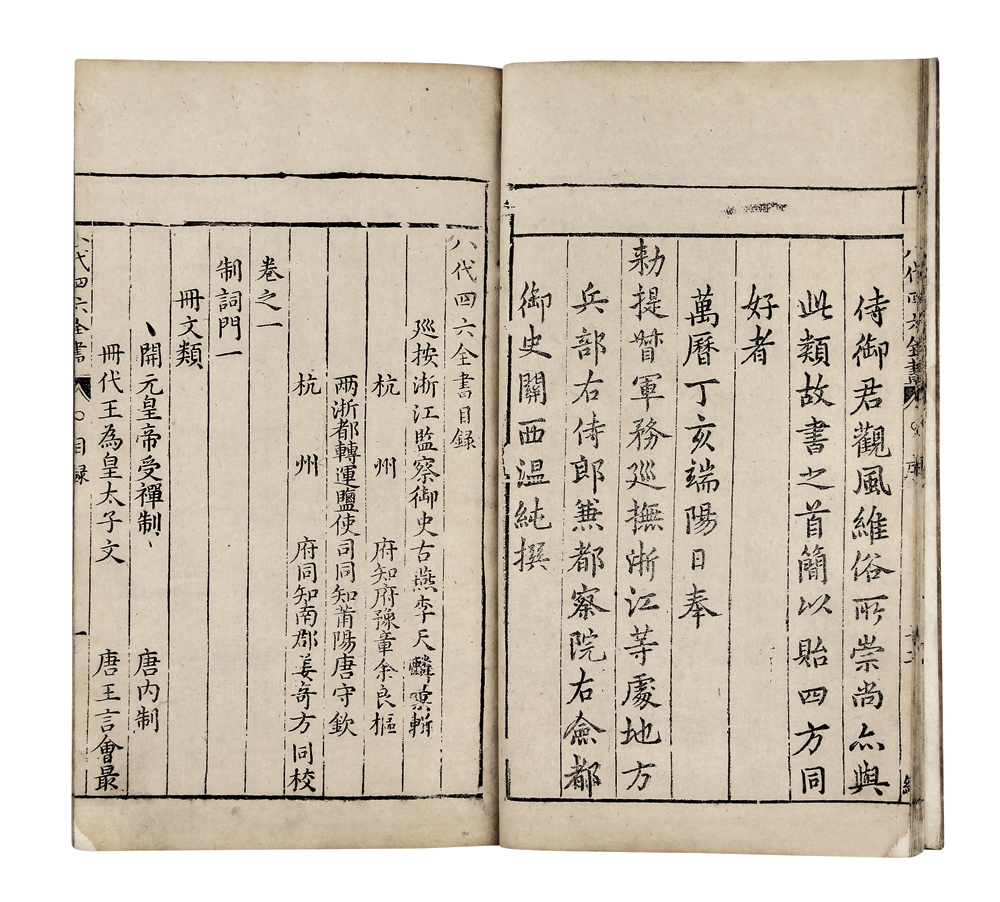 侍御君觀風維俗所崇尚亦與
此類故書之首簡以貽四方同
好者
萬曆丁亥端陽日奉
勑提督軍務巡撫浙江等處地方
兵部右侍郎兼都察院右僉都
御史關西溫純撰
八代四六全書目錄
巡按浙江監察御史古燕李天麟彙輯
杭州府知府豫章余良樞
兩浙都轉運鹽使司同知莆陽唐守欽
杭州府同知南郡姜奇方同校
卷之一
制詞門一
冊文類
開元皇帝受禪制 唐內制
冊代王為皇太子文 唐王言會最
八代四六全書 目錄 一